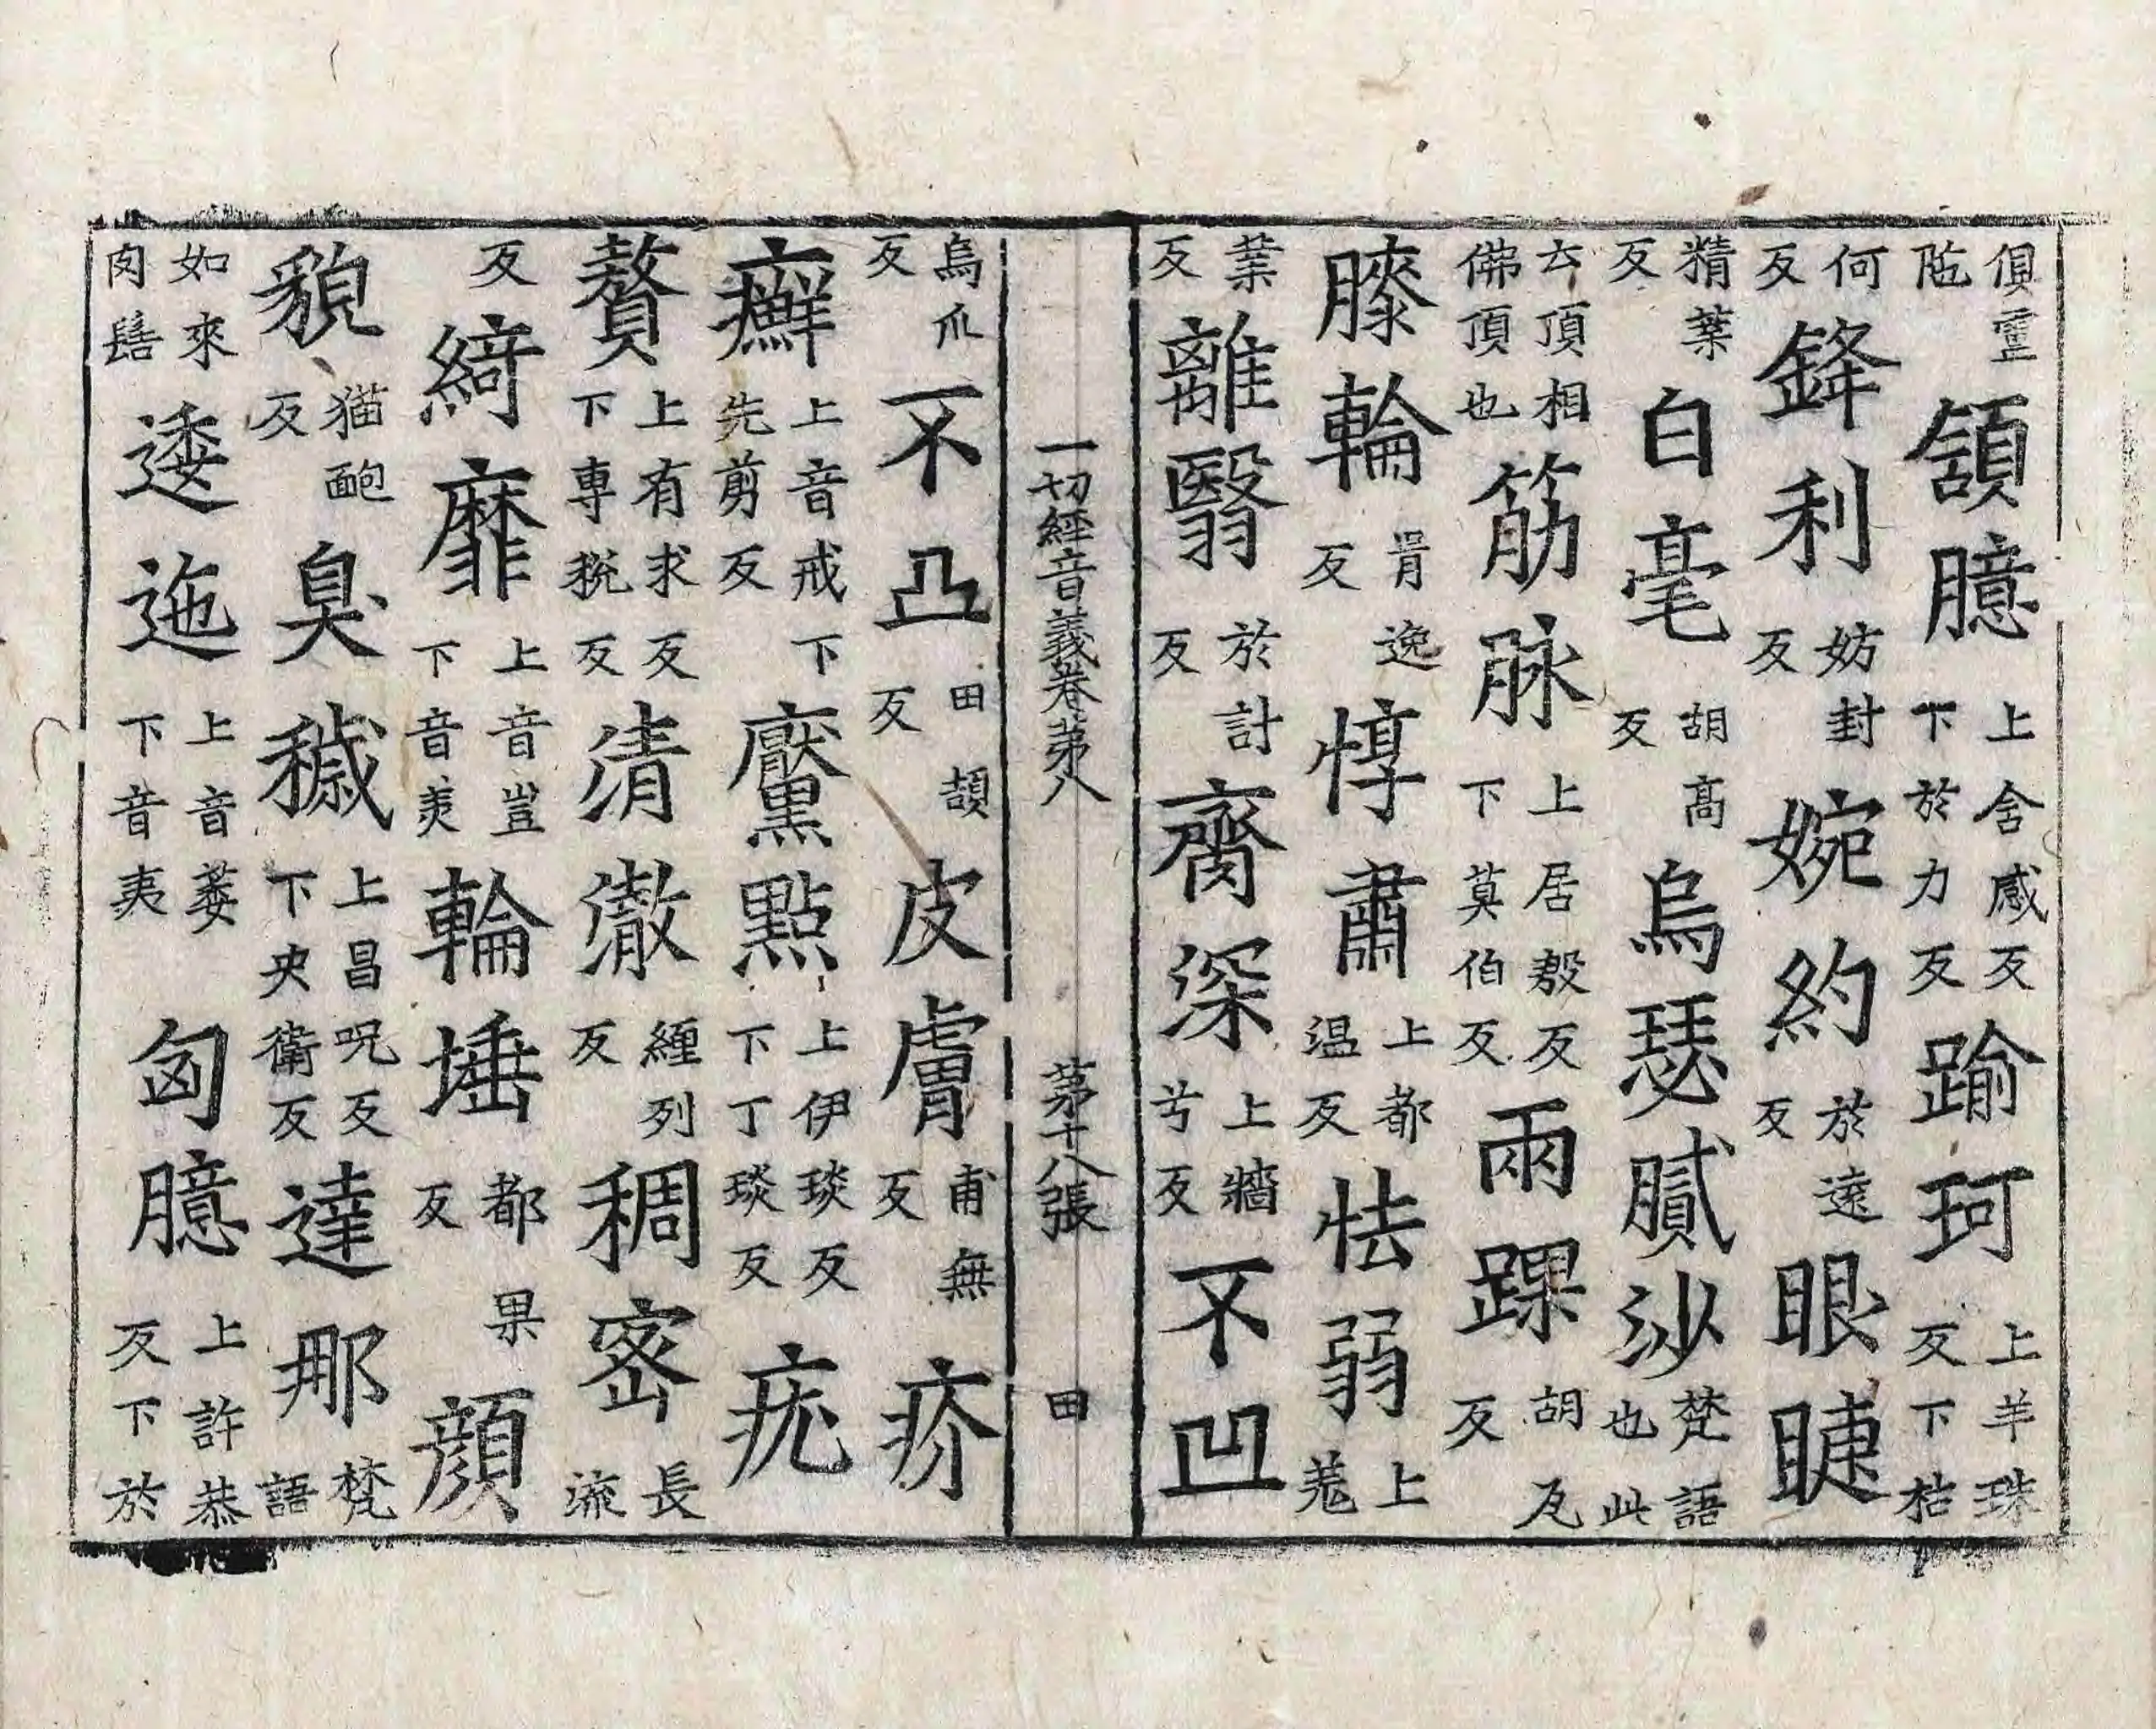 俱䨥陁頷臆上含感反下於力反踰珂上羊珠反下枯
何反鋒利妨封反婉約於遠反眼睫
精葉反白毫胡高反烏瑟膩沙梵語也此
云頂相佛頂也筋脉上居殷反下莫伯反兩踝胡瓦反
膝輪反惇肅上都温反怯弱上羗
業反離翳於計反齊深上牆兮反不凹
一切經音義卷苐八 苐十八張 田
烏爪反不凸田頡反皮膚甫無反疥
癬上音戒下先剪反黶點上伊琰反下丁琰反疣
贅上有求反下専稅反清徹纏列反稠密長流
反綺靡上音豈下音美輪埵都果反顏
貌猫皰反臭穢上昌呪反下央衛反達那梵語
如來肉髻逶迤上音萎下音夷匈臆上許恭反下於